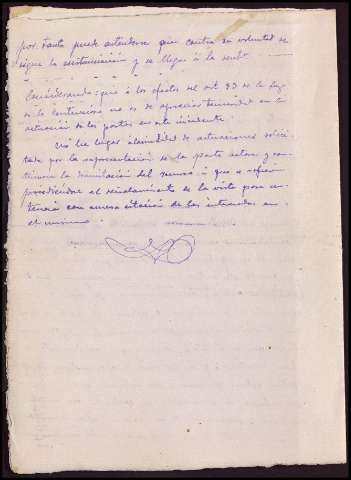 por tanto puede entenderse que contra su voluntad se
sigue la sustanciación y se llegue á la sent
Considerando: que á los efectos del art 93 de la Ley
de lo Contencioso no es de apreciar temeridad en la
actuación de las partes en este incidente.
No ha lugar á la nulidad de actuaciones solici-
tada por la representación de la parte actora y con-
tinue la tramitación del recurso á que se refieren
procediendose al señalamiento de la vista para sen-
tencia con nueva citación de los interesados en
el mismo.